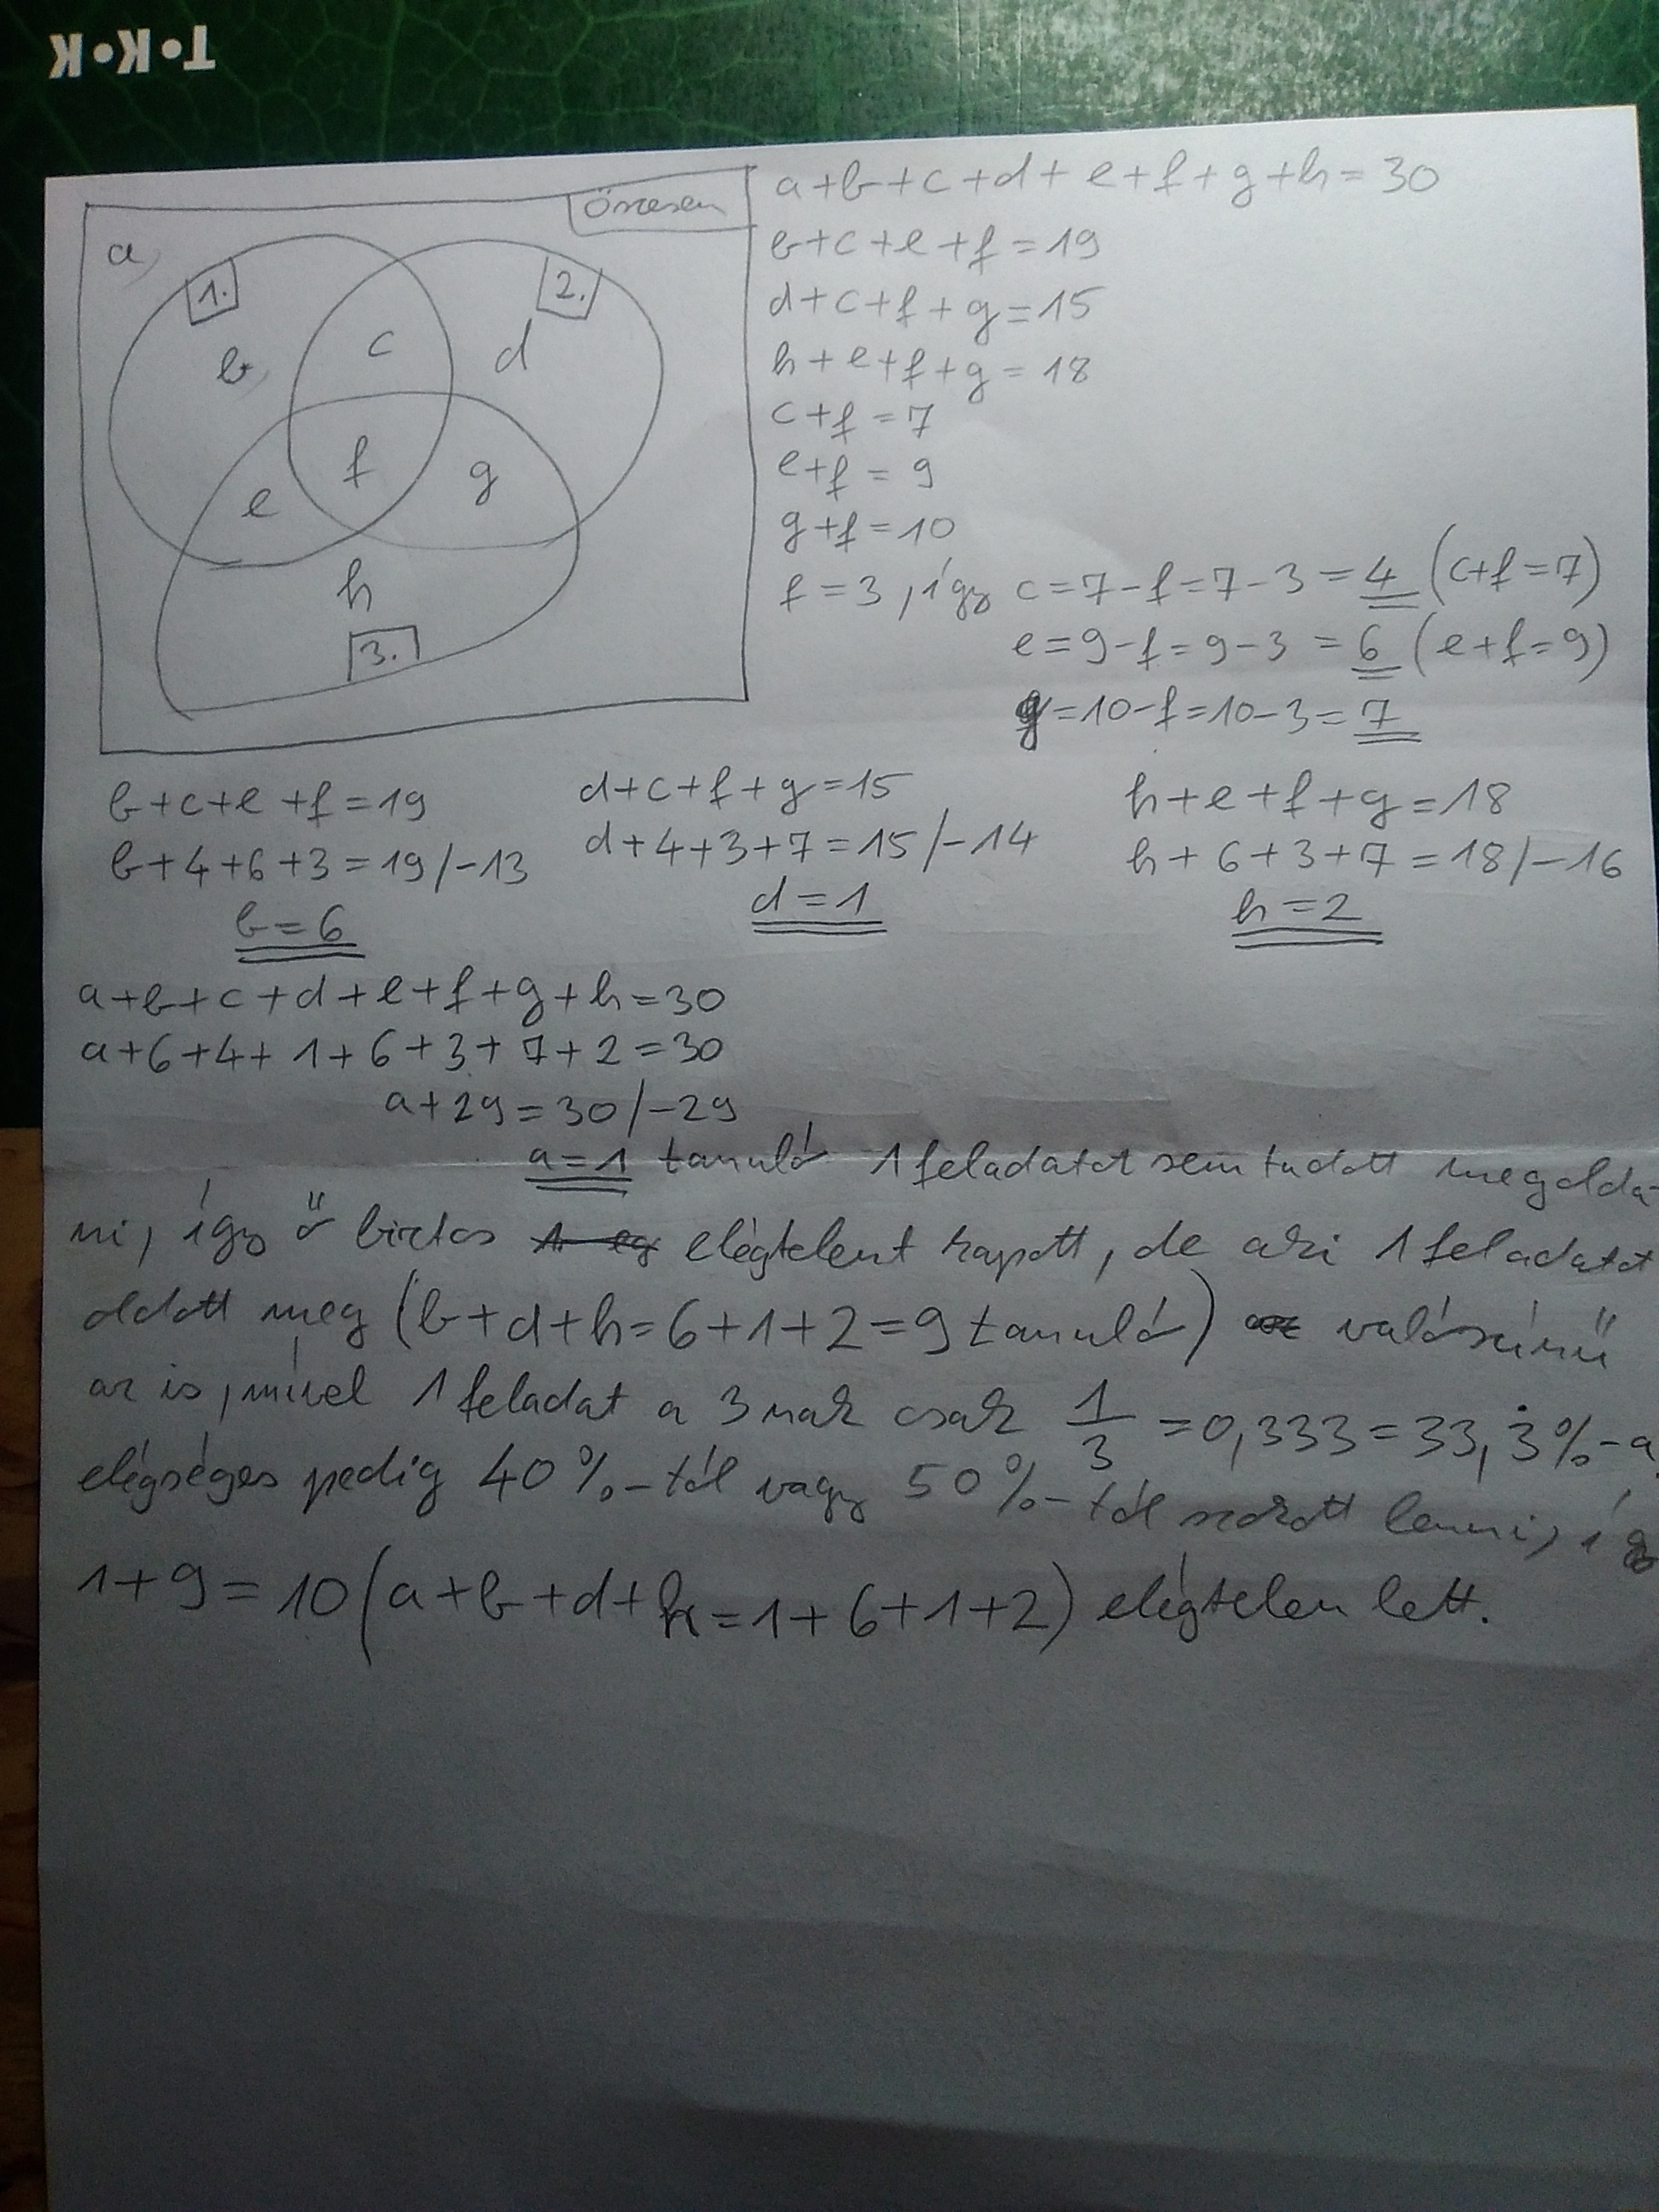 T•K•K
Összesen
a+b+c+d+e+f+g+h=30
a,
1.
2.
b,
c
d
e
f
g
h
3.
b+c+e+f=19
d+c+f+g=15
h+e+f+g=18
c+f=7
e+f=9
g+f=10
f=3, így c=7-f=7-3=4 (c+f=7)
e=9-f=9-3=6 (e+f=9)
g=10-f=10-3=7
b+c+e+f=19
b+4+6+3=19/-13
b=6
d+c+f+g=15
d+4+3+7=15/-14
d=1
h+e+f+g=18
h+6+3+7=18/-16
h=2
a+b+c+d+e+f+g+h=30
a+6+4+1+6+3+7+2=30
a+29=30/-29
a=1 tanuló 1 feladatot sem tudott megolda-
ni, így ő biztos elégtelent kapott, de aki 1 feladatot
oldott meg (b+d+h=6+1+2=9 tanuló) valószínű
az is, mivel 1 feladat a 3 nak csak 1/3 =0,333=33,3̇%-a,
elégséges pedig 40%-tól vagy 50%-tól szokott lenni, íg
1+9=10 (a+b+d+h=1+6+1+2) elégtelen lett.